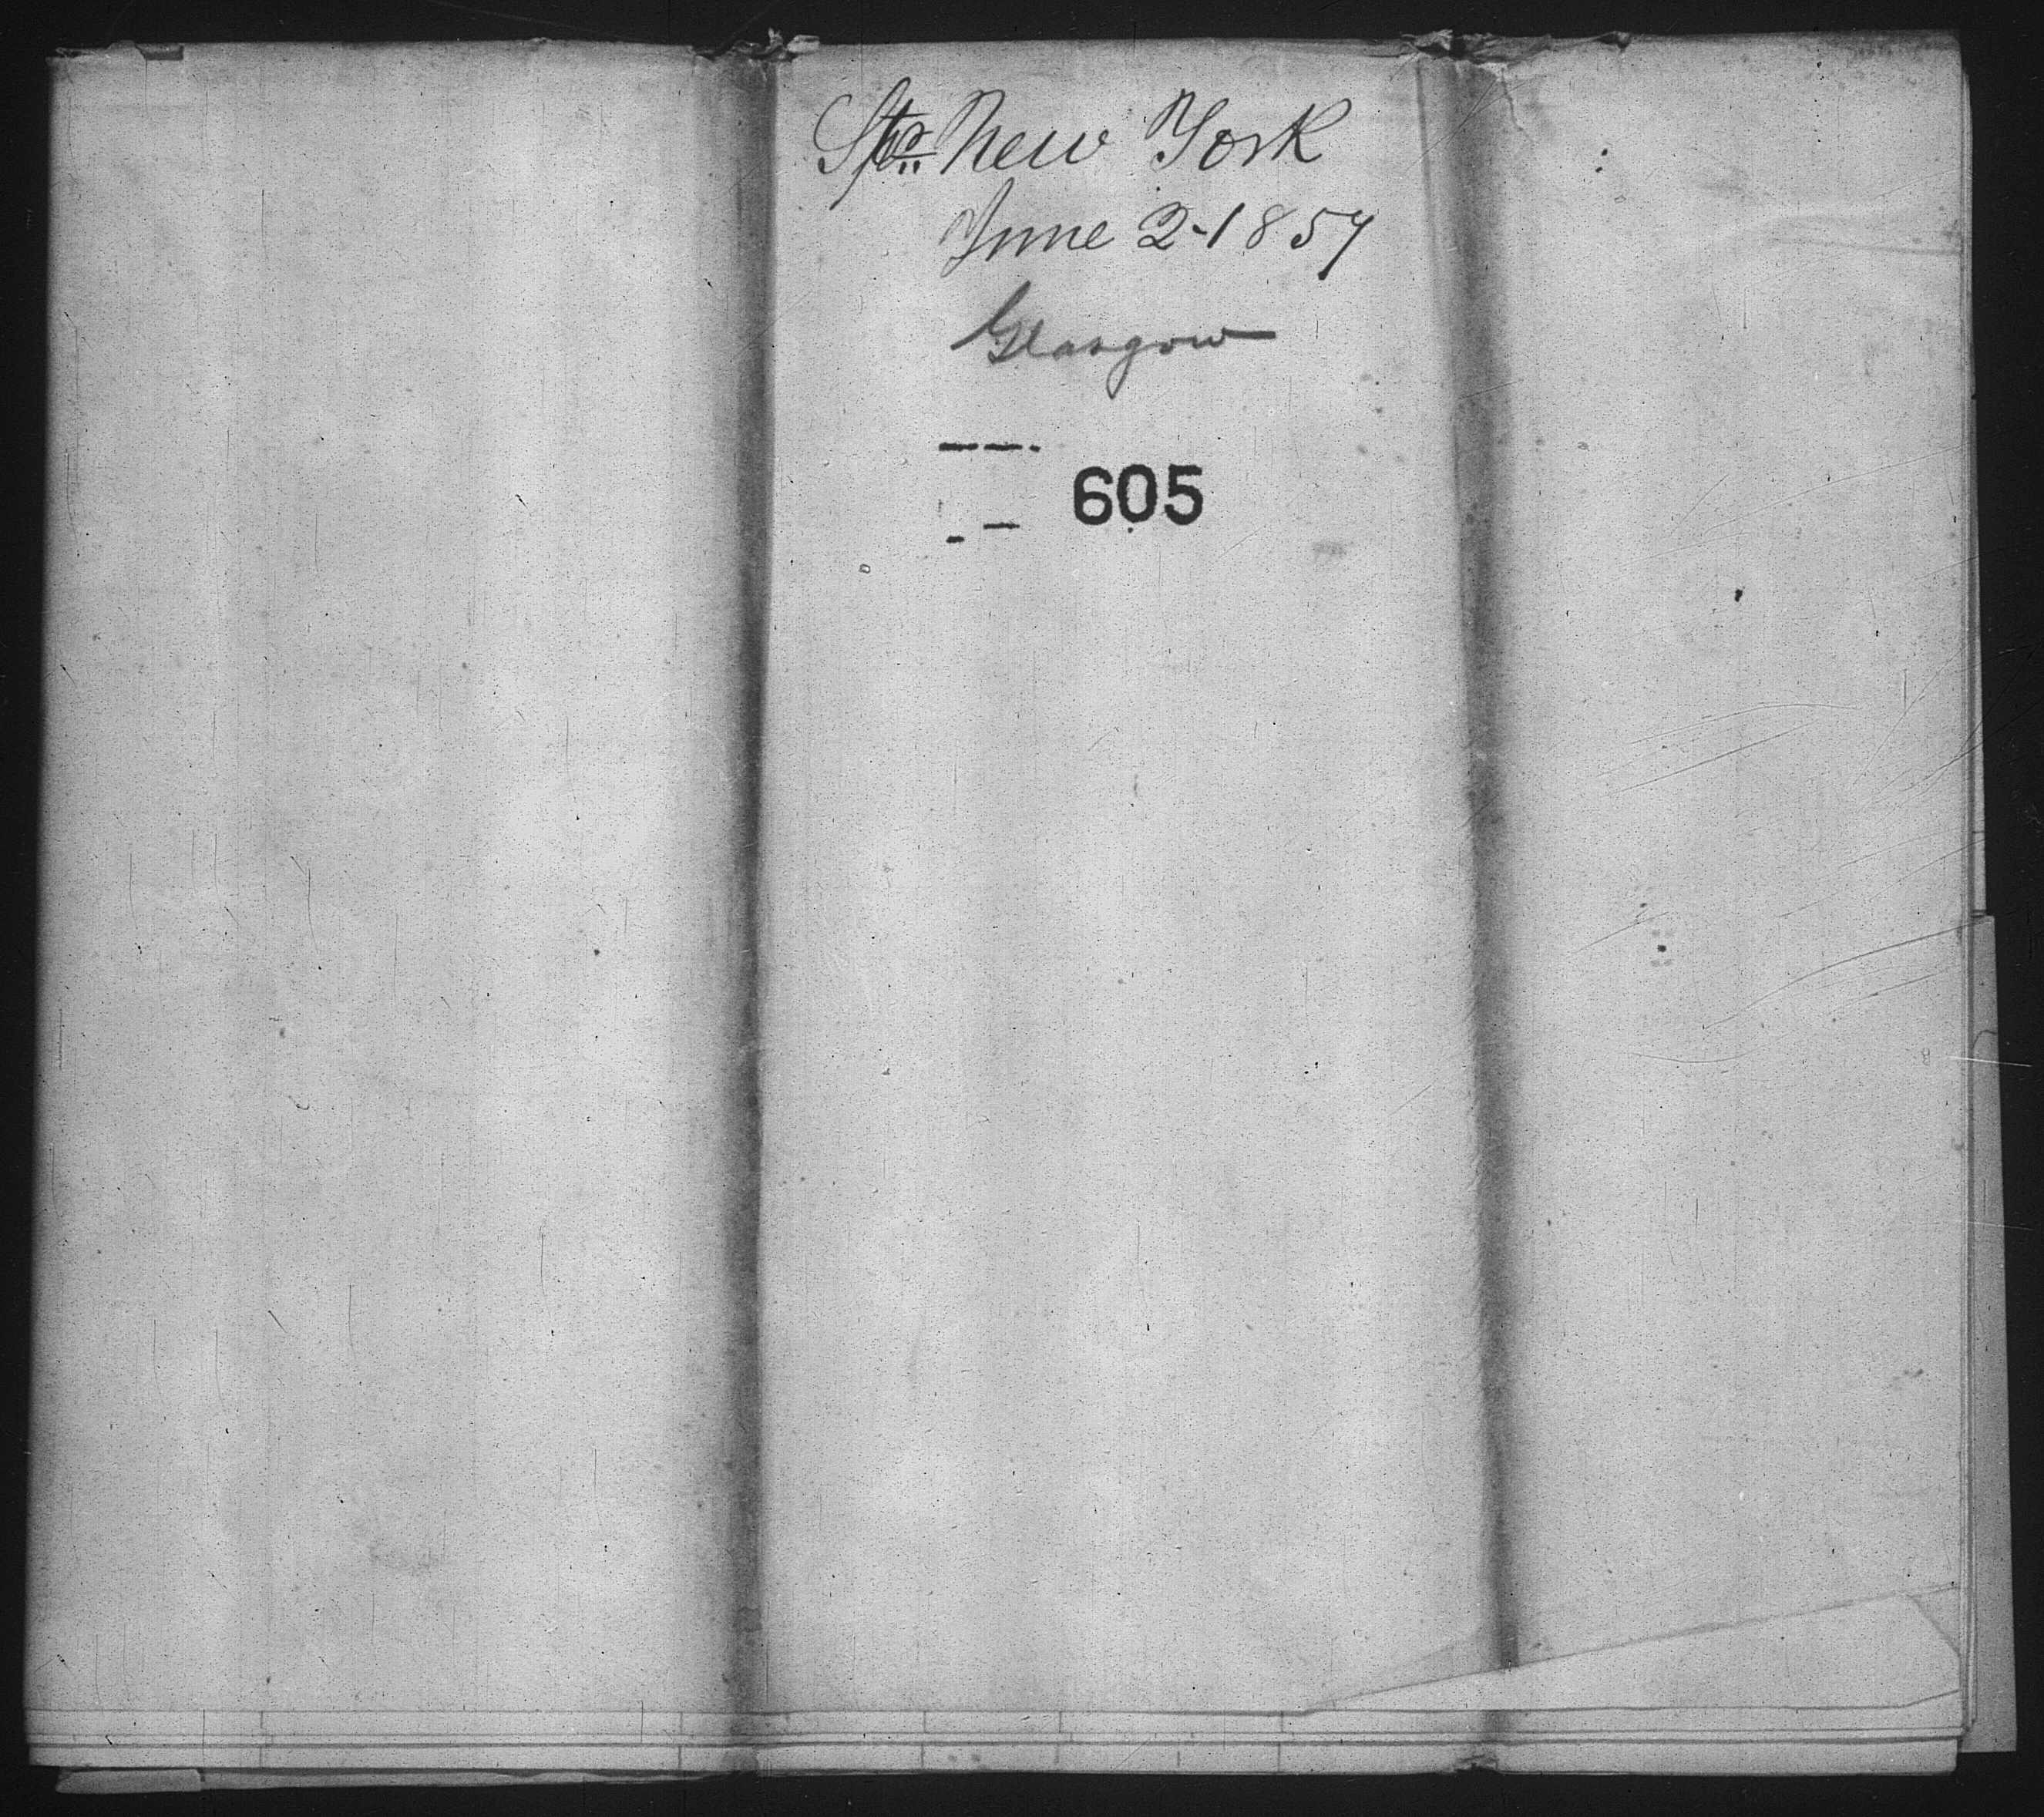 New York
June 2-1857
Glasgow
605